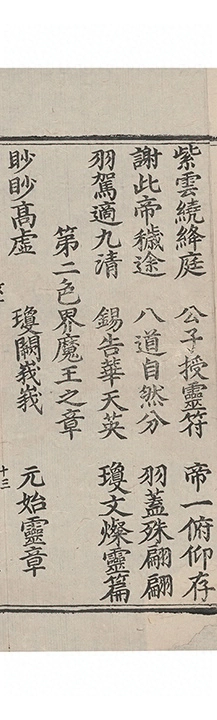 紫雲繞絳庭　公子授靈符　帝一俯仰存
謝此帝穢途　八道自然分　羽蓋殊翩翩
羽駕適九清　錫告華天英　瓊文燦靈篇
第二色界魔王之章
眇眇高虛　瓊闕峩峩　元始靈章
十三